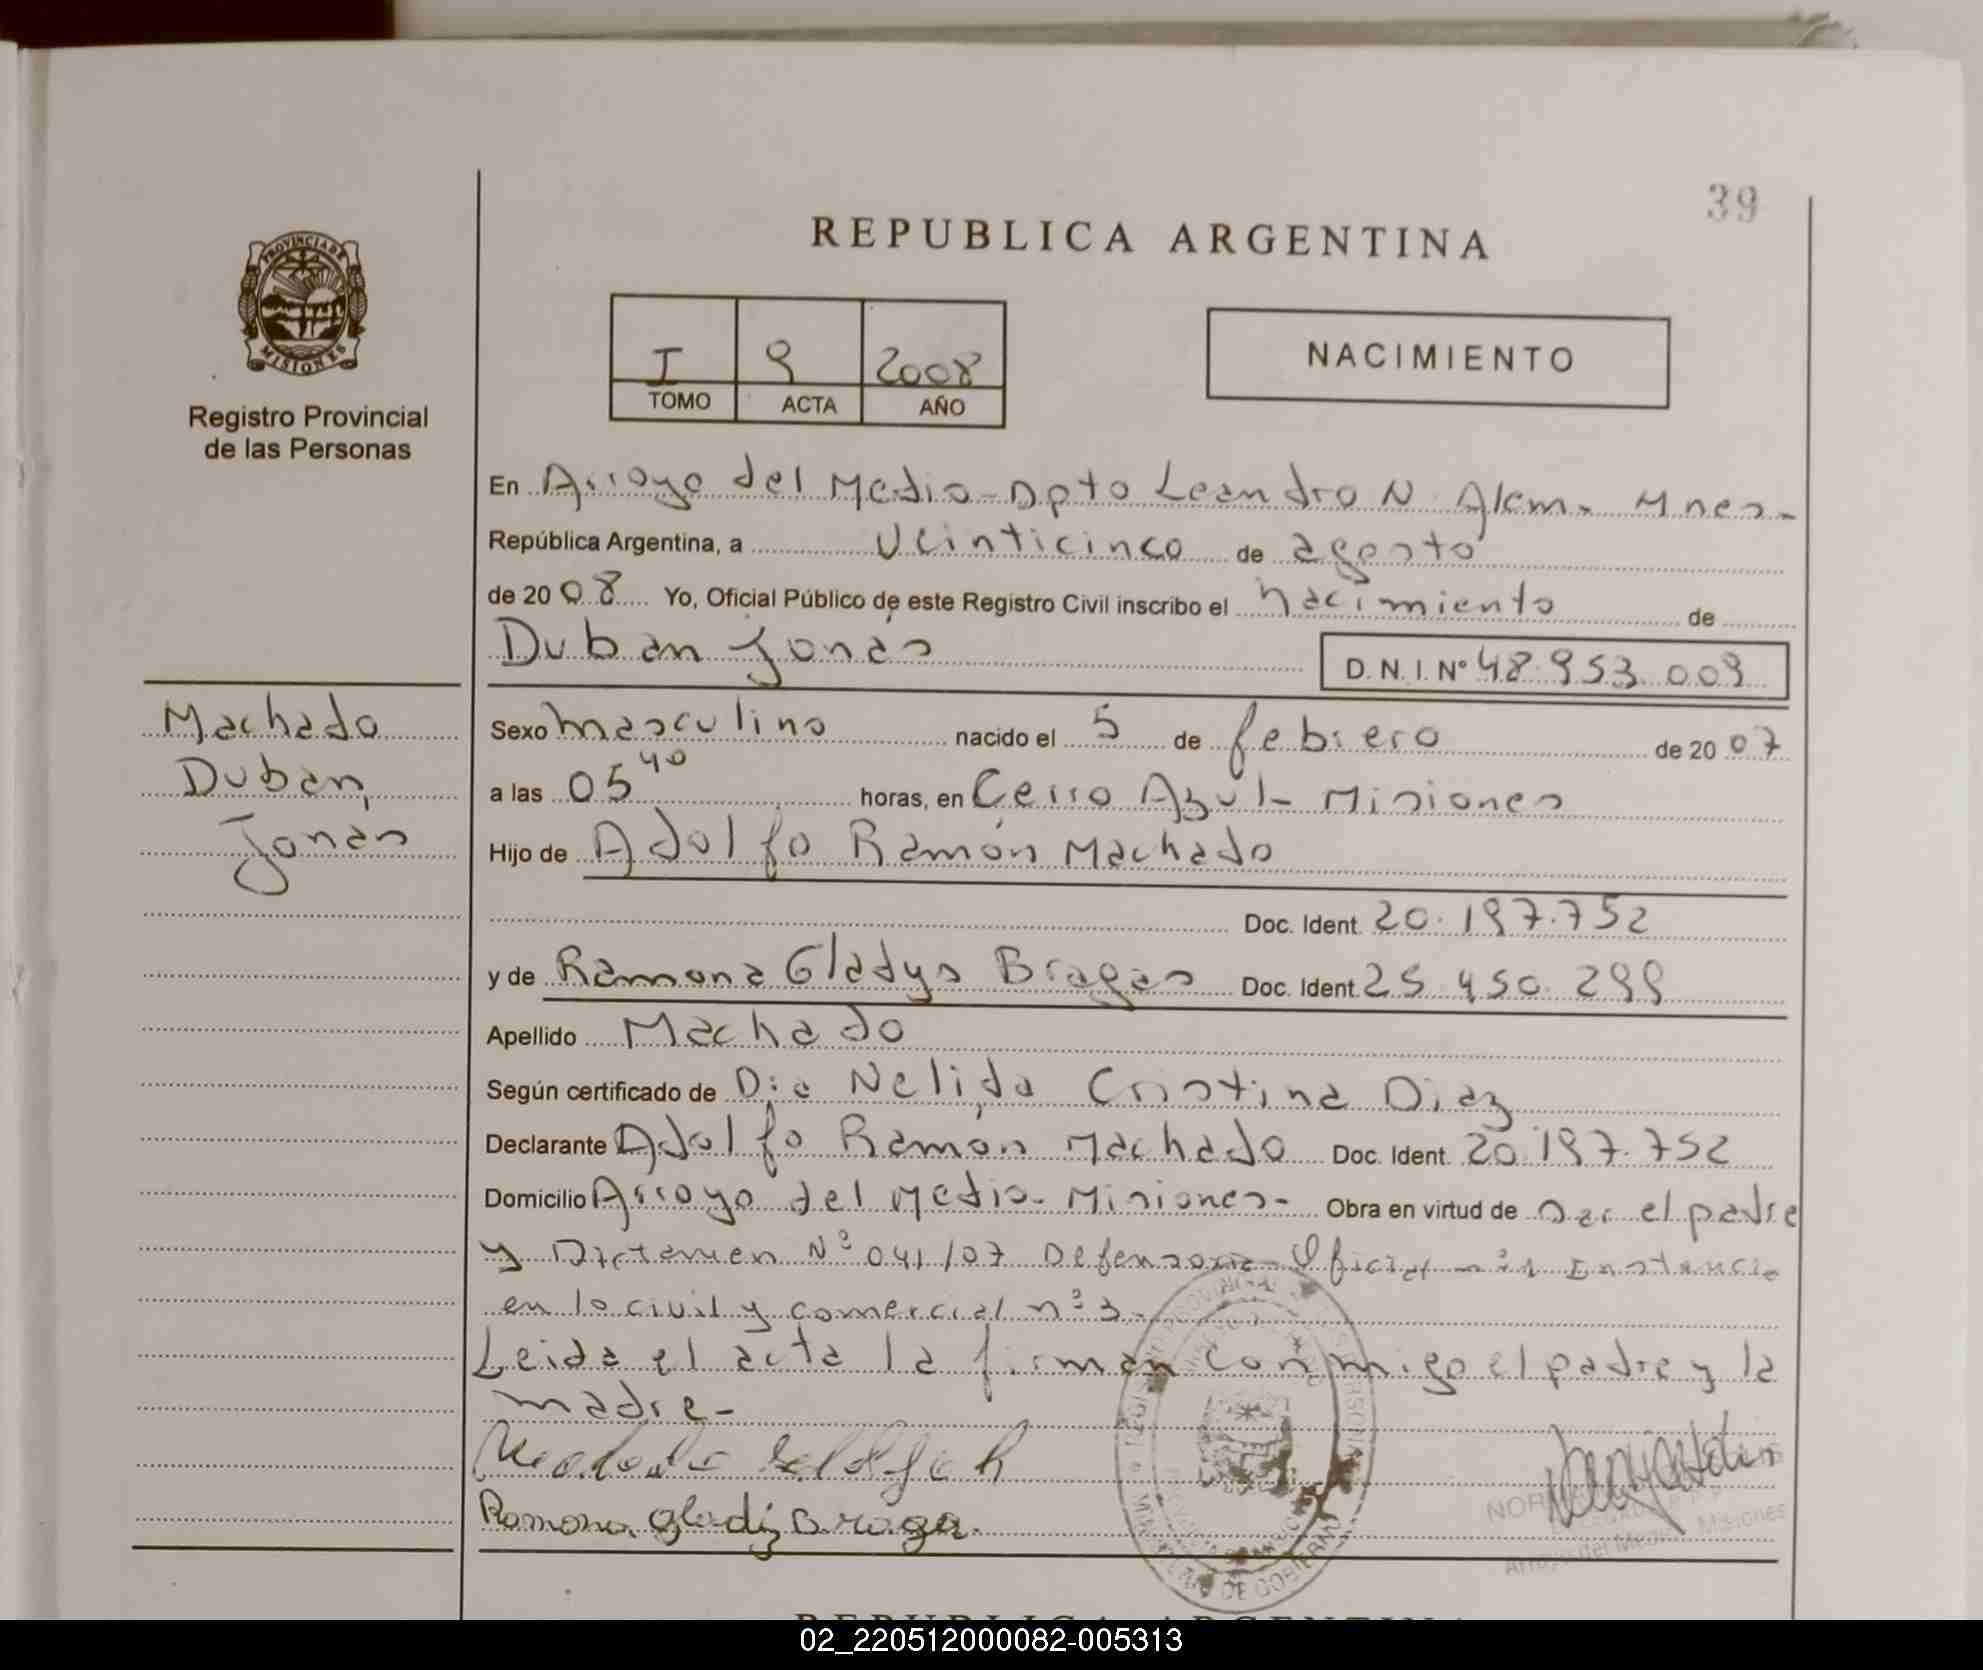 39
REPUBLICA ARGENTINA
PROVINCIA DE
MISIONES
I 9 2008
TOMO ACTA AÑO
NACIMIENTO
Registro Provincial
de las Personas
En Arroyo del Medio - Dpto Leandro N. Alem - Mnes -
República Argentina, a veinticinco de agosto
de 20 08 Yo, Oficial Público de este Registro Civil inscribo el nacimiento de
Duban Jonas
D. N. I. Nº 48.953.009
Machado
Duban,
Jonas
Sexo masculino nacido el 5 de febrero de 20 07
a las 05 40 horas, en Cerro Azul - Misiones
Hijo de Adolfo Ramón Machado
Doc. Ident. 20.197.752
y de Ramona Gladys Bragas Doc. Ident. 25.450.299
Apellido Machado
Según certificado de Dra Nelida Cristina Diaz
Declarante Adolfo Ramón Machado Doc. Ident. 20.197.752
Domicilio Arroyo del Medio - Misiones - Obra en virtud de ser el padre
y Dictamen Nº 041/07 Defensoria Oficial Instancia
en lo civil y comercial nº 3 -
Leida el acta la firman conmigo el padre y la
madre -
Machado
Ramona Gladiz Braga.
MINISTERIO DE GOBIERNO
Arroyo del Medio Misiones
REPUBLICA ARGENTINA
02_220512000082-005313